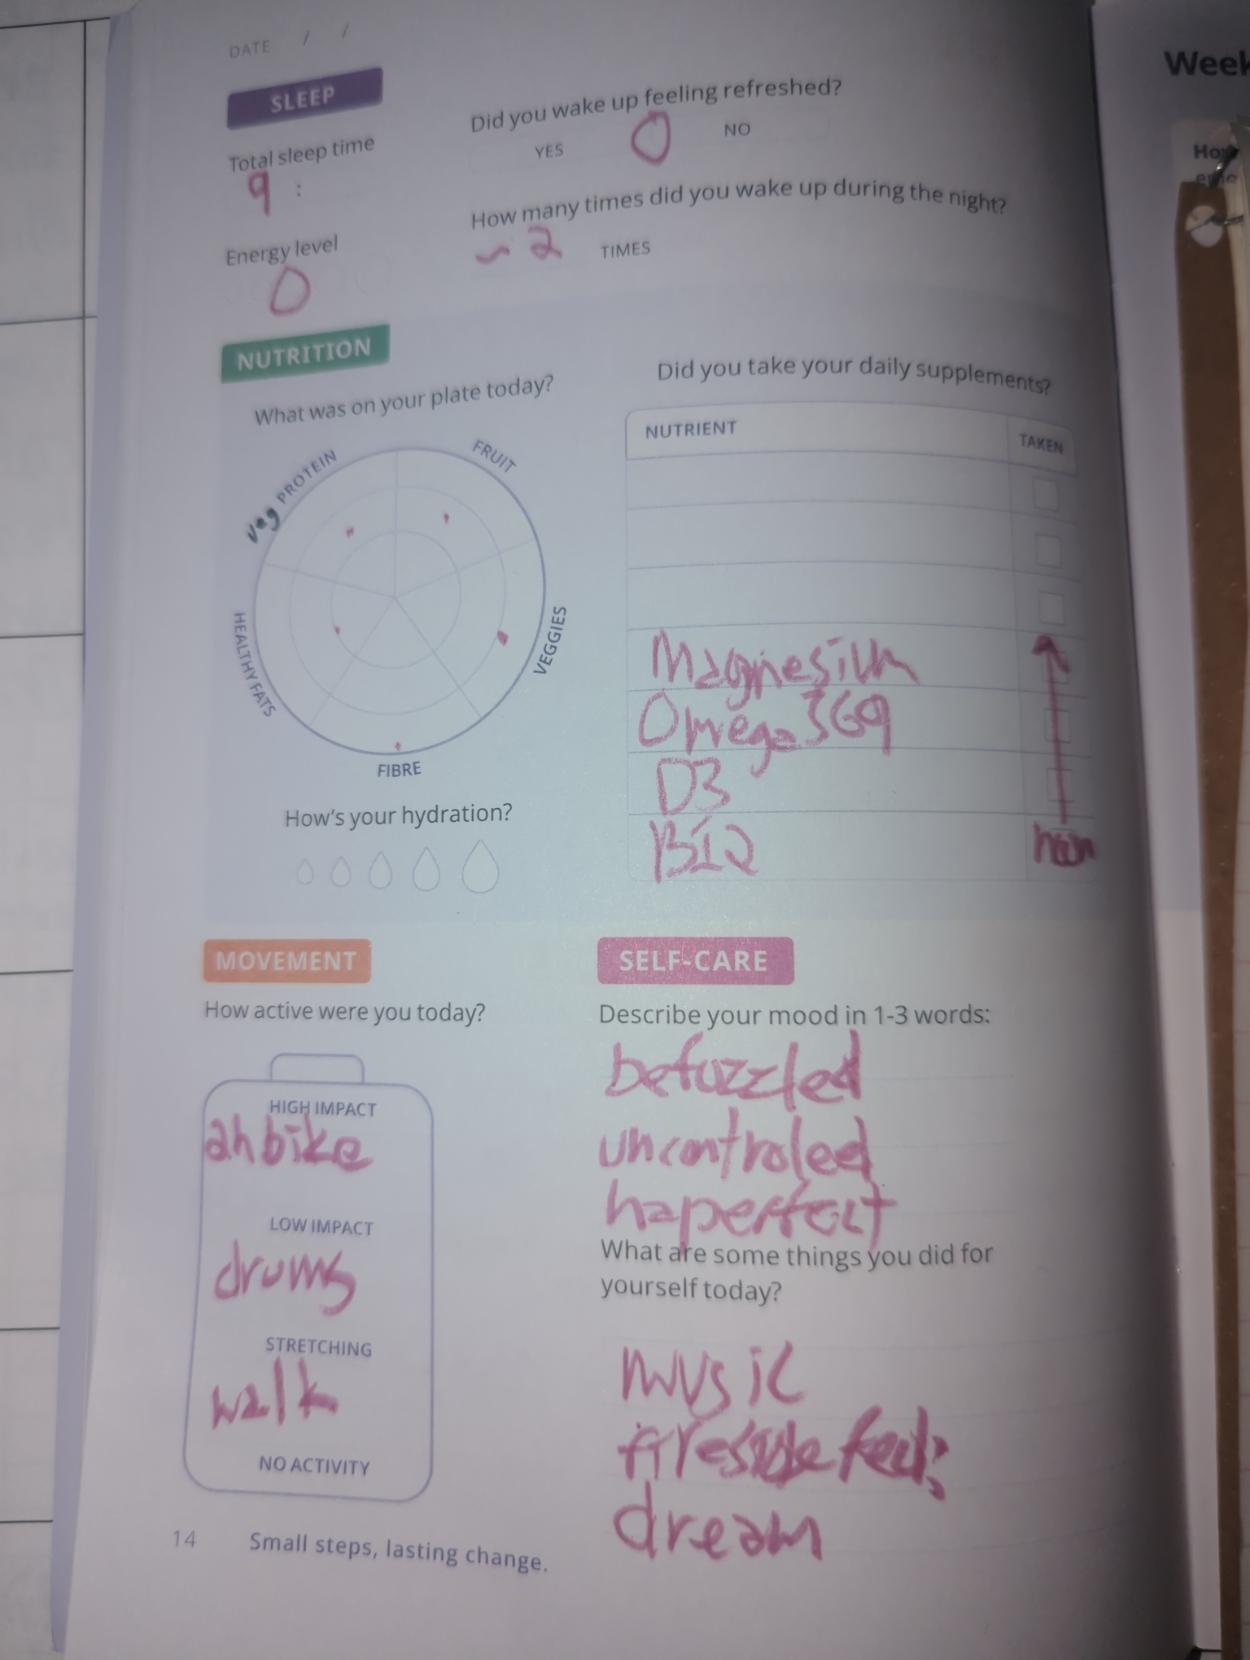 DATE / /
SLEEP
Did you wake up feeling refreshed?
YES O NO
Total sleep time
9 :
How many times did you wake up during the night?
~2 TIMES
Energy level
0
NUTRITION
What was on your plate today?
veg PROTEIN
FRUIT
VEGGIES
FIBRE
HEALTHY FATS
How's your hydration?
Did you take your daily supplements?
NUTRIENT TAKEN
Magnesium
Omega 369
D3
B12
MOVEMENT
How active were you today?
HIGH IMPACT
ah bike
LOW IMPACT
drums
STRETCHING
walk
NO ACTIVITY
SELF-CARE
Describe your mood in 1-3 words:
befuzzled
uncontroled
haperfect
What are some things you did for
yourself today?
music
fireside
dream
14 Small steps, lasting change.
Week